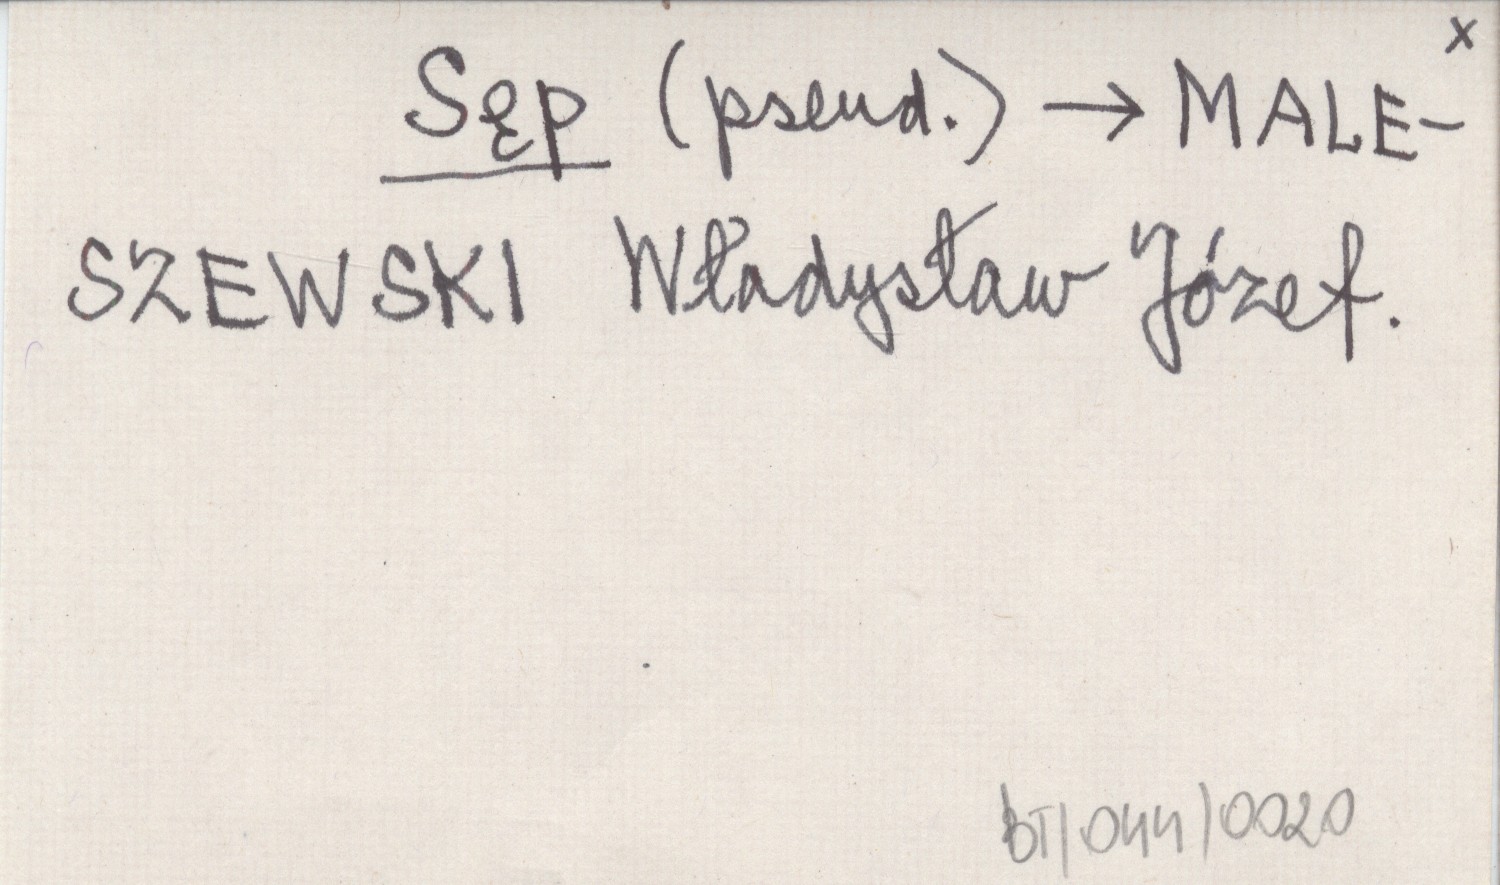 x
Sęp (pseud.) → MALE-
SZEWSKI Władysław Józef.
BT/044/0020